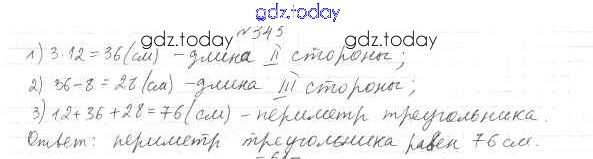 gdz.today
№345
1) 3·12=36(см) – длина II стороны;
gdz.today gdz.today
2) 36-8=28(см) – длина III стороны;
3) 12+36+28=76(см) – периметр треугольника.
Ответ: периметр треугольника равен 76 см.